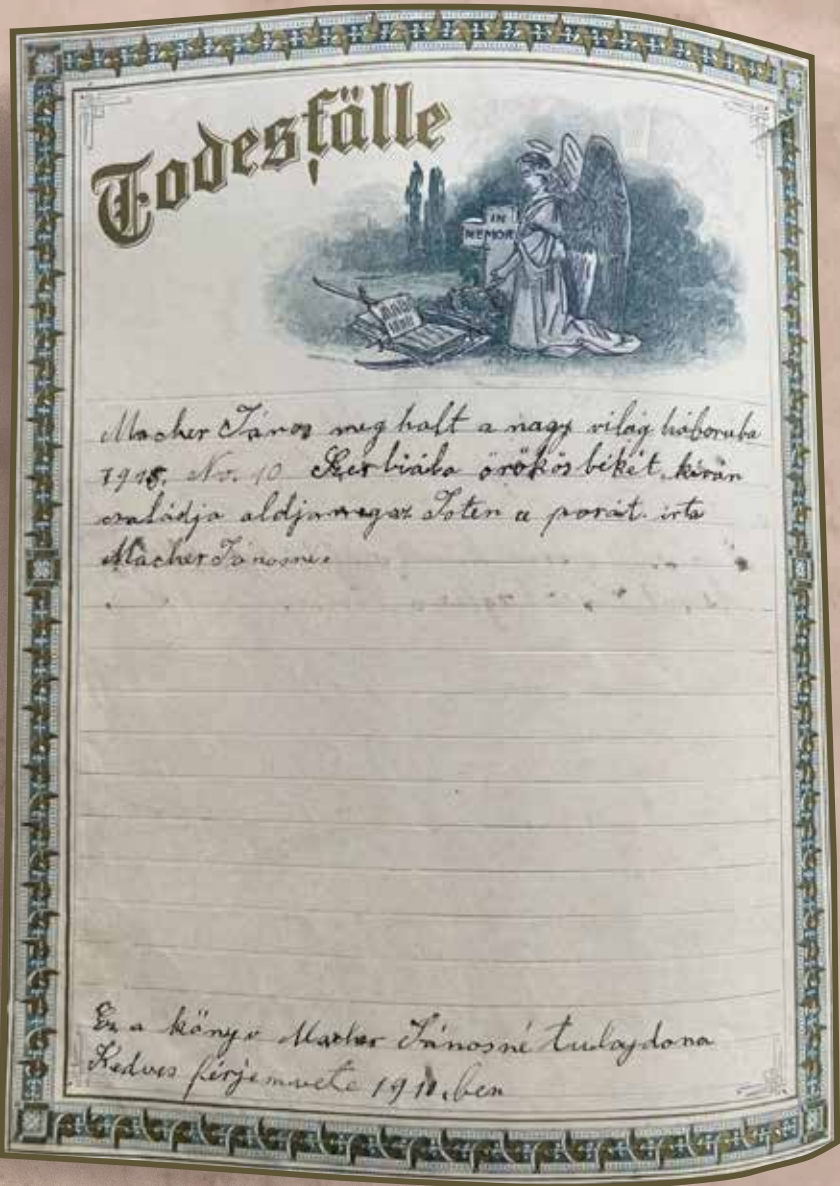 Todesfälle
IN
MEMOR
Macher János meg halt a nagy világ háboruba
1915. Nov. 10 Szerbiába örökös békét kiván
családja aldja meg az Isten a porát. irta
Macher Jánosné.
Ez a könyv Macher Jánosné tulajdona
Kedves férjem vete 1911.ben